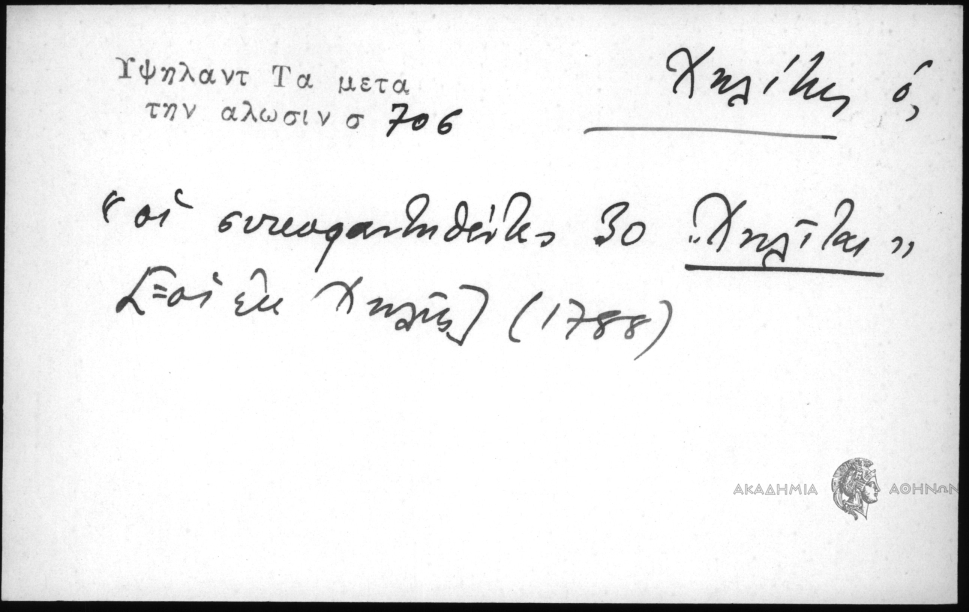 Υψηλαντ Τα μετα
την αλωσιν σ 706
Χηλίτης ὁ,
"οἱ συκοφαντηθέντες 30 "Χηλῖται"
[=οἱ ἐκ Χηλῆς] (1788)
ΑΚΑΔΗΜΙΑ ΑΘΗΝΩΝ